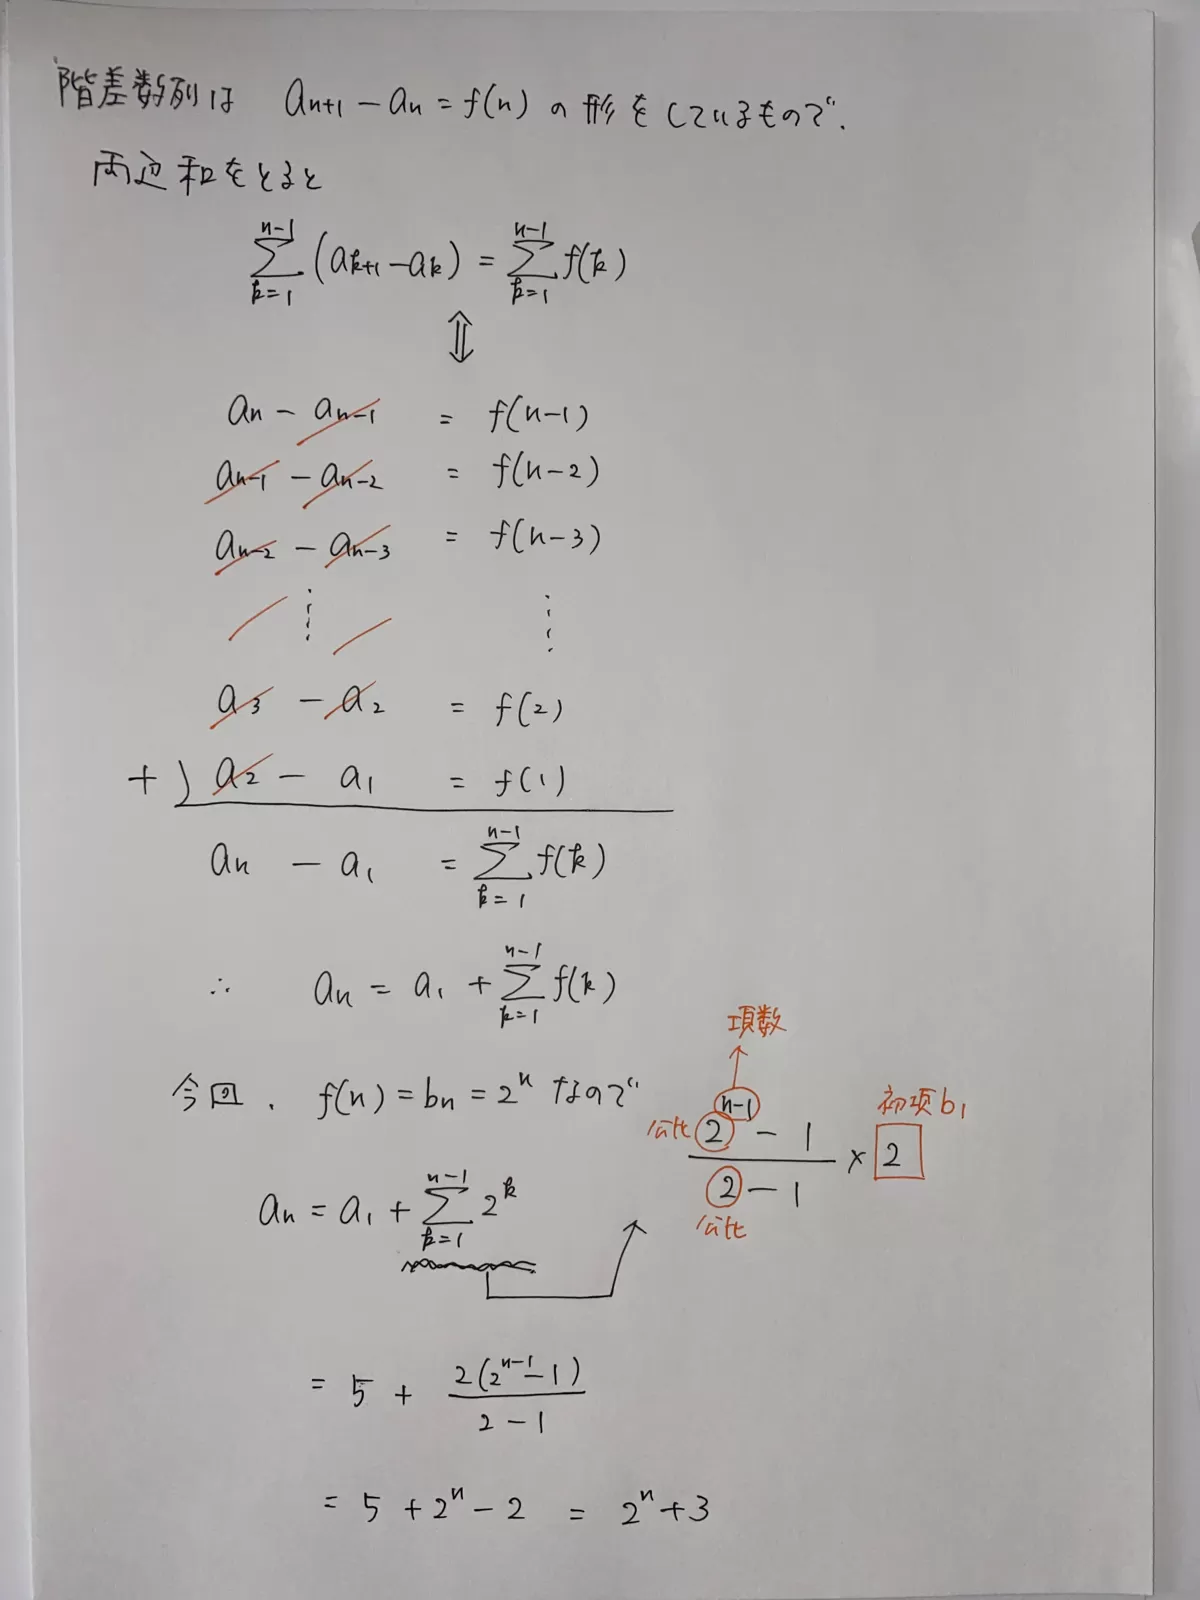 階差数列は a_{n+1} - a_n = f(n) の形をしているもので.
両辺和をとると
\sum_{k=1}^{n-1} (a_{k+1} - a_k) = \sum_{k=1}^{n-1} f(k)
⇕
a_n - a_{n-1} = f(n-1)
a_{n-1} - a_{n-2} = f(n-2)
a_{n-2} - a_{n-3} = f(n-3)
⋮ ⋮
a_3 - a_2 = f(2)
+) a_2 - a_1 = f(1)
a_n - a_1 = \sum_{k=1}^{n-1} f(k)
∴ a_n = a_1 + \sum_{k=1}^{n-1} f(k)
今回, f(n) = b_n = 2^n なので
a_n = a_1 + \sum_{k=1}^{n-1} 2^k
項数
初項 b_1
公比
\frac{2^{n-1} - 1}{2 - 1} × 2
公比
= 5 + \frac{2(2^{n-1} - 1)}{2 - 1}
= 5 + 2^n - 2 = 2^n + 3